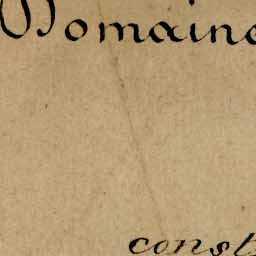 Domaine
const